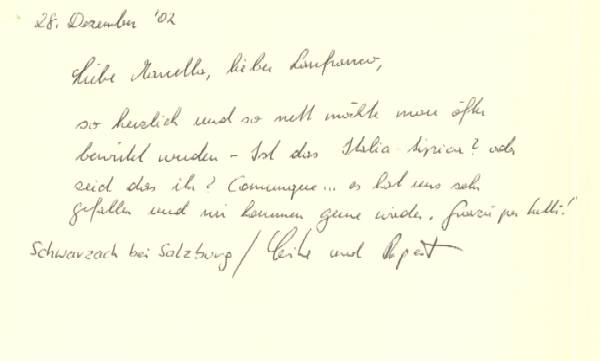 28. Dezember '02
Liebe Marcella, lieber Lanfranco,
so herzlich und so nett möchte man öfter
bewirtet werden – Ist das Italia tipica? oder
seid das ihr? Comunque... es hat uns sehr
gefallen und wir kommen gerne wieder. Grazie per tutti!
Schwarzach bei Salzburg / und Rupert